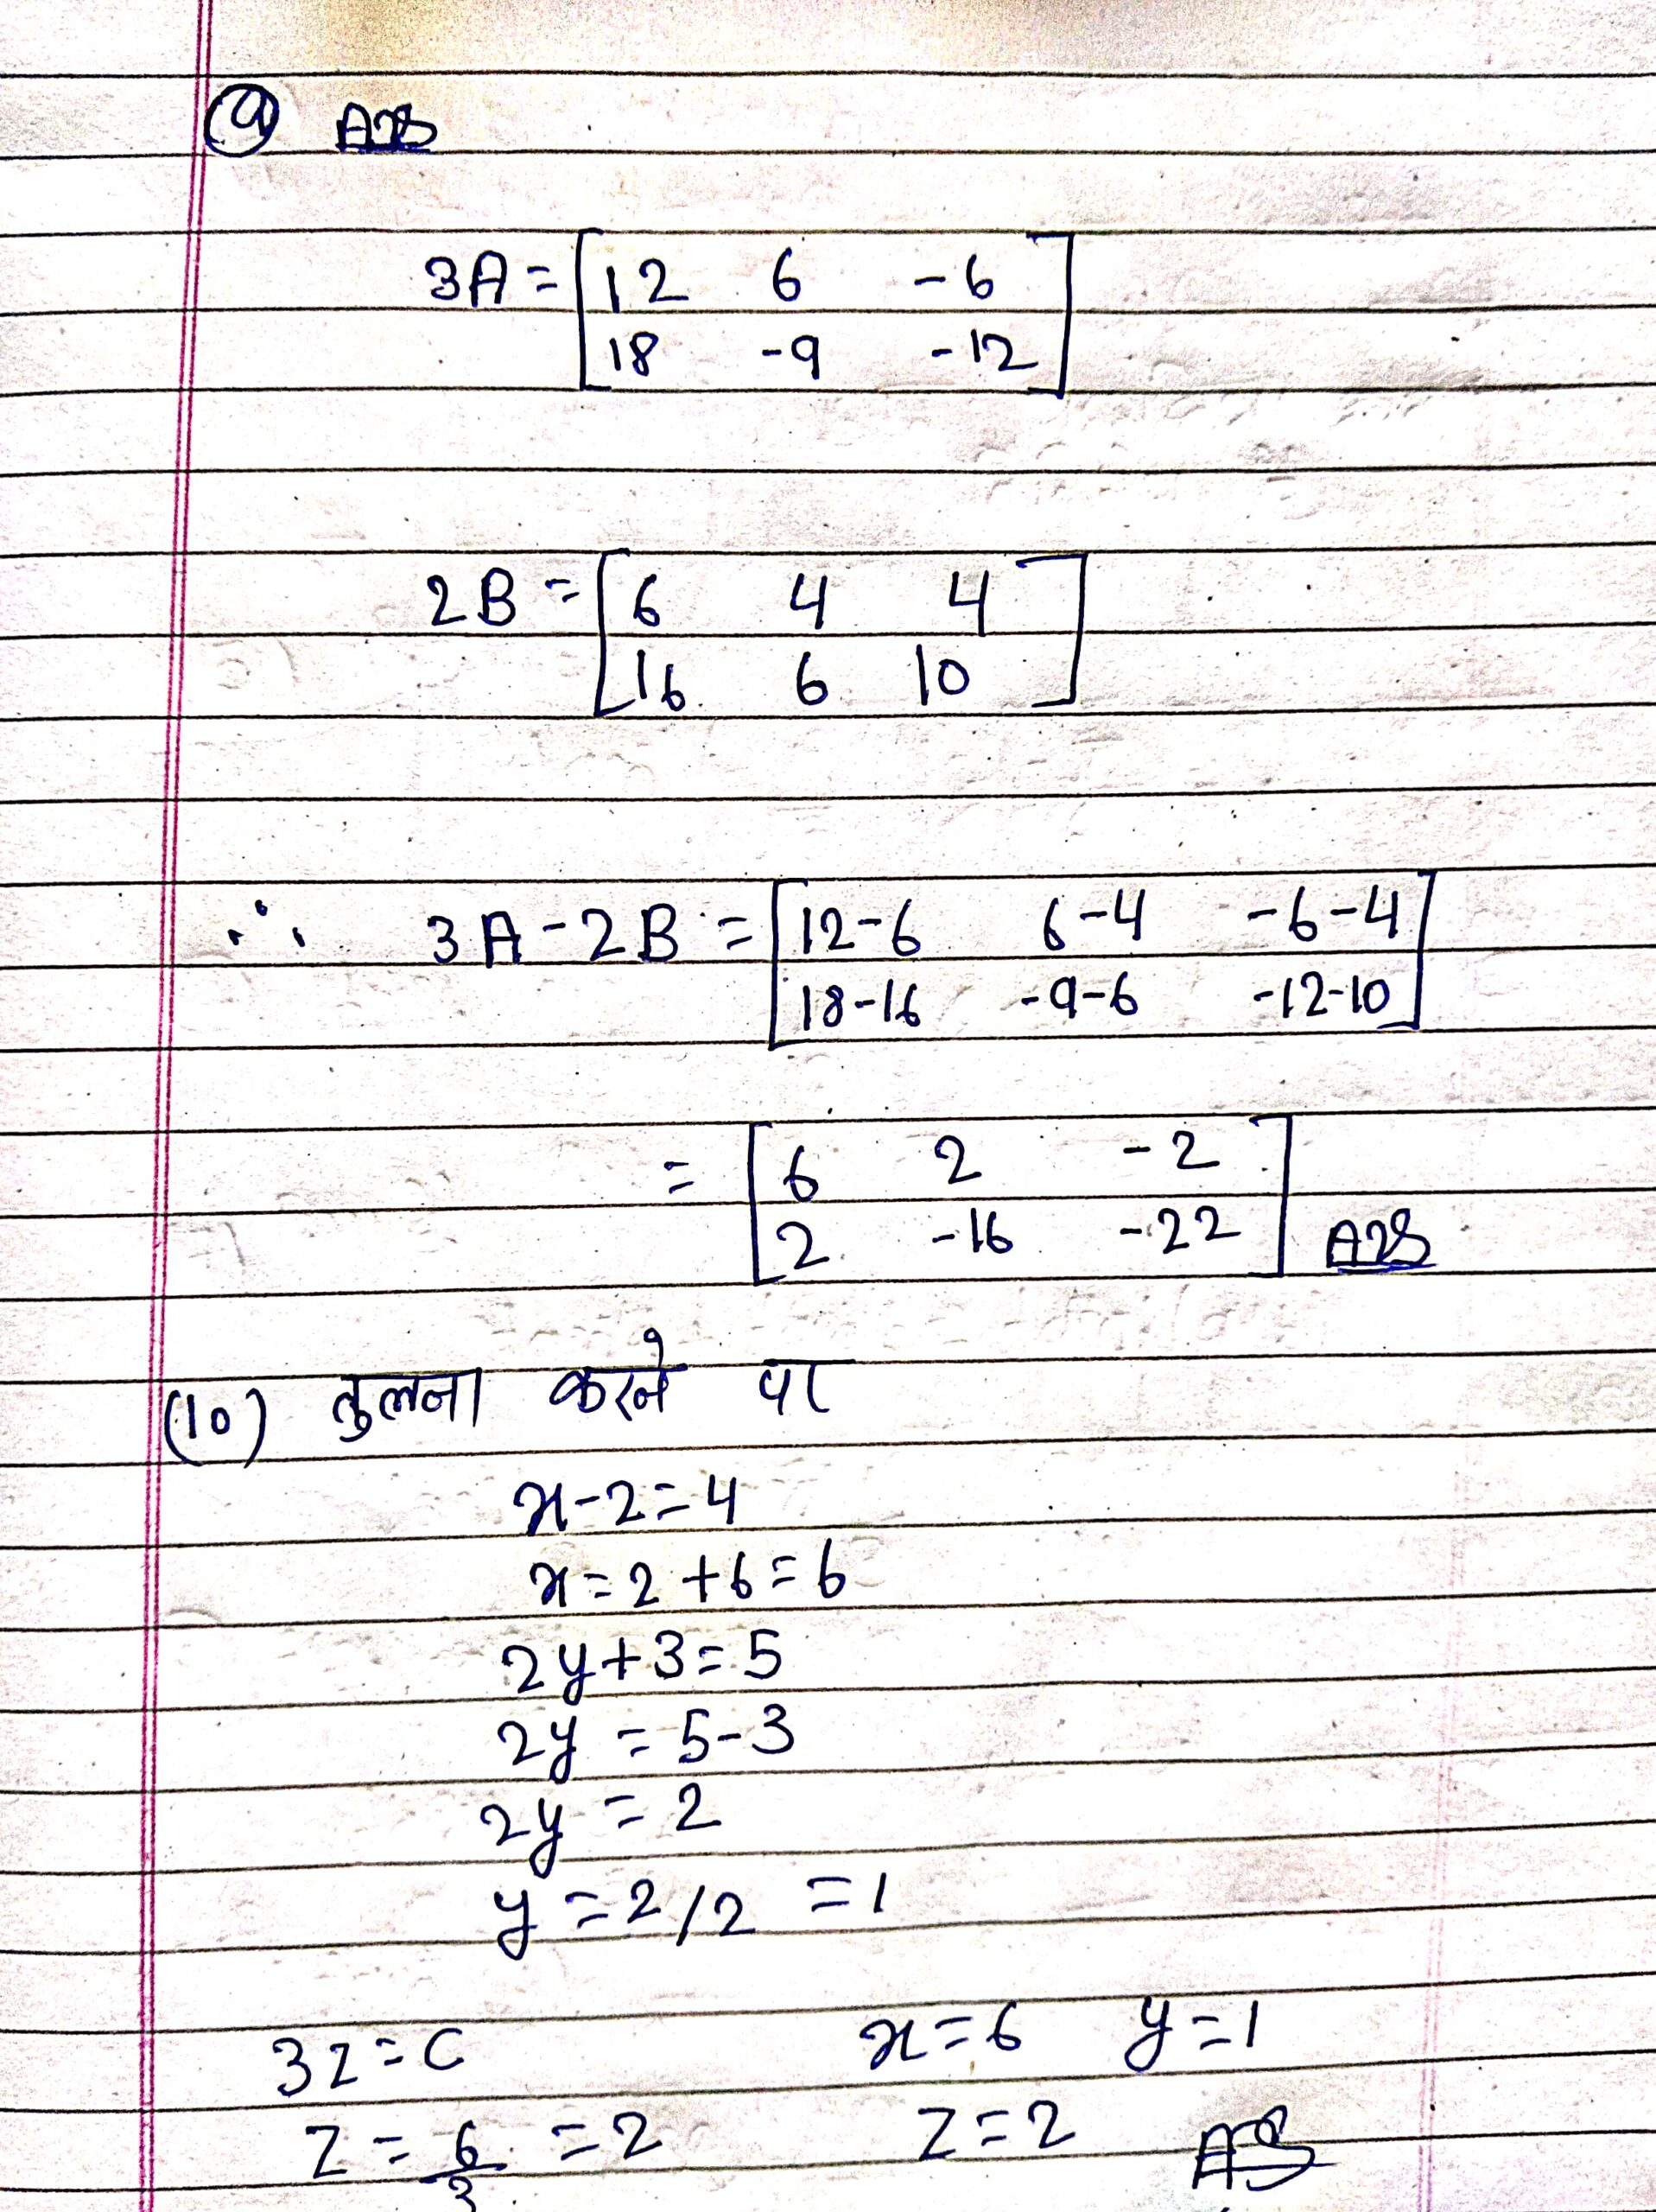 9 Ans
3A = [12 6 -6
18 -9 -12]
2B = [6 4 4
16 6 10]
∴ 3A - 2B = [12-6 6-4 -6-4
18-16 -9-6 -12-10]
= [6 2 -2
2 -16 -22] Ans
(10) तुलना करने पर
x-2=4
x=2+6=6
2y+3=5
2y = 5-3
2y = 2
y = 2/2 = 1
3z = C x=6 y=1
z = 6/3 = 2 z=2 Ans